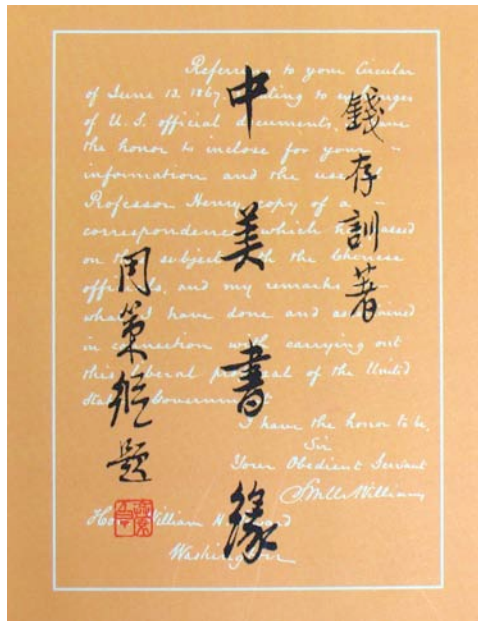 錢存訓著
中美書緣
周策縱題
Referring to your Circular
of June 13. 1867. to exchanges
of U. S. official documents, I have
the honor to inclose for your
information and the use of
Professor Henry copy of a
correspondence which has passed
on the subject with the Chinese
officials, and my remarks
what I have done and
in connection with carrying out
this liberal proposal of the United
States Government
I have the honor to be,
Sir
Your Obedient Servant
S Wells Williams
William H Seward
Washington